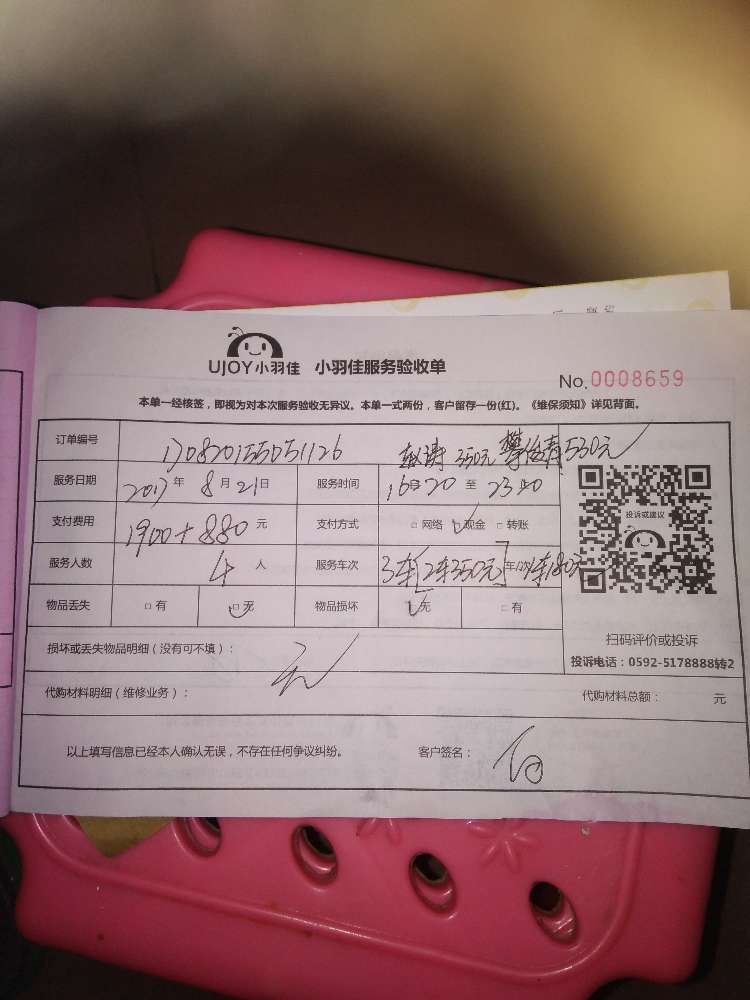 UJOY小羽佳 小羽佳服务验收单
No.0008659
本单一经核签，即视为对本次服务验收无异议。本单一式两份，客户留存一份(红)。《维保须知》详见背面。
订单编号 170820155051126 赵谢 350元 樊俊青 530元
服务日期 2017年 8月 21日 服务时间 16:20 至 23:20
支付费用 1900+880 元 支付方式 □网络 □现金 □转账
投诉或建议
服务人数 4 人 服务车次 3车[2车350元] 1车180元
物品丢失 □有 □无 物品损坏 □无 □有
扫码评价或投诉
损坏或丢失物品明细（没有可不填）： 无
投诉电话：0592-5178888转2
代购材料明细（维修业务）： 代购材料总额： 元
以上填写信息已经本人确认无误，不存在任何争议纠纷。 客户签名：